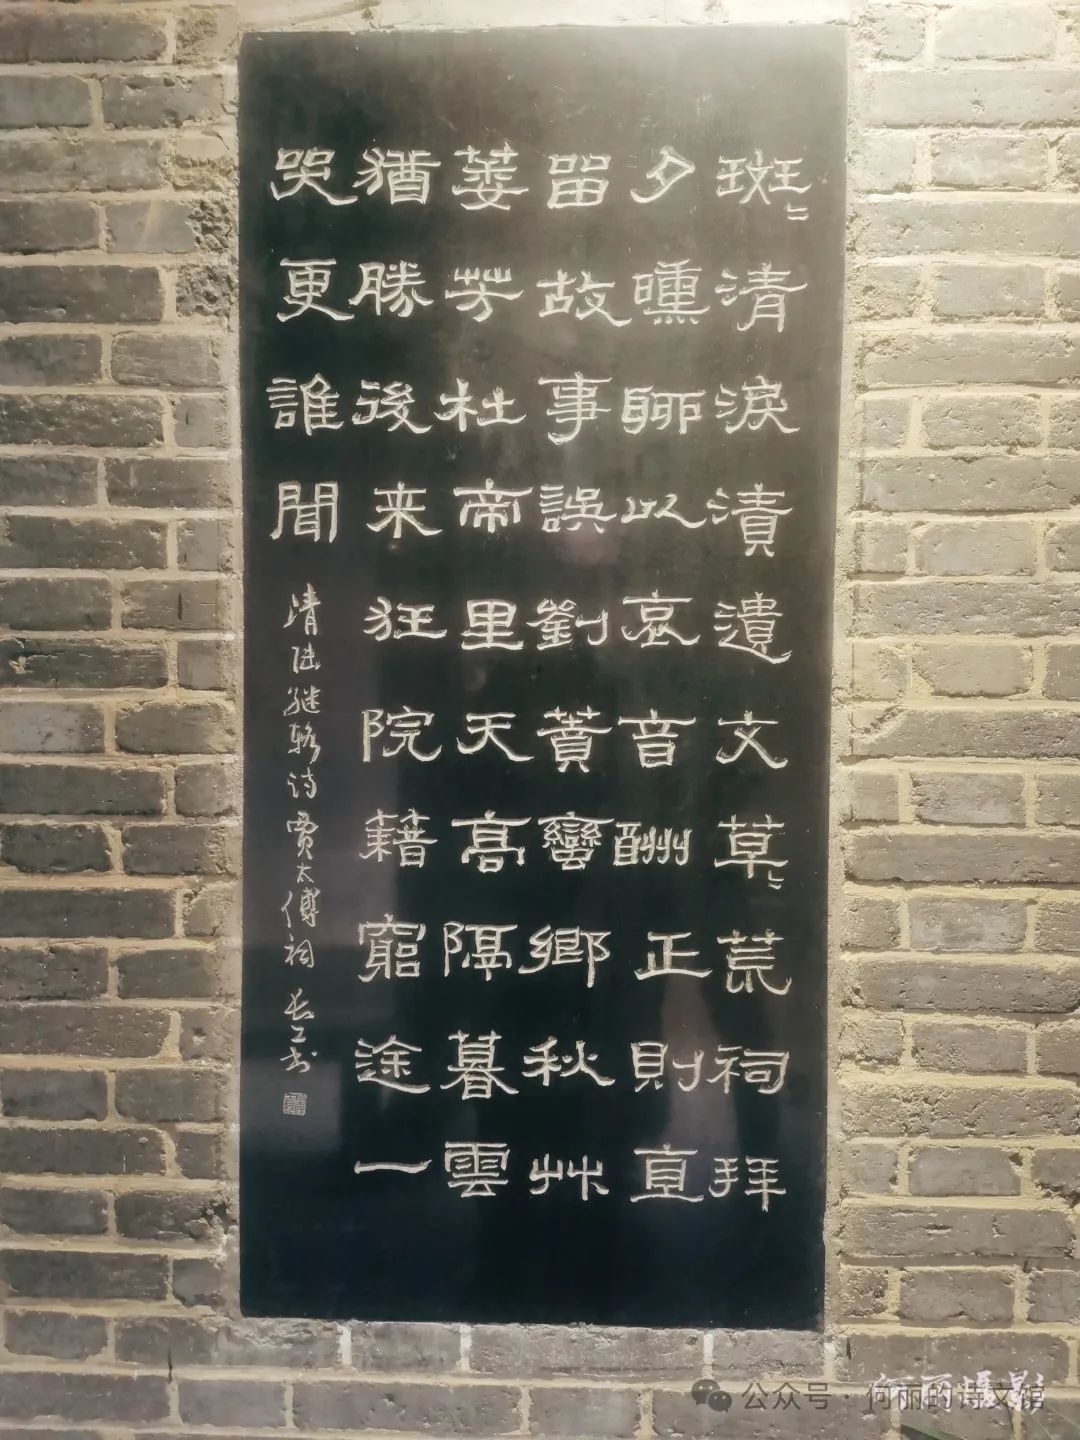 斑〻清淚漬遺文草〻荒祠拜
夕曛聊以哀音酬正則直
留故事誤劉蕡蠻鄉秋艸
萎芳杜帝里天高隔暮雲
猶勝後来狂院籍窮途一
哭更誰聞
清陆继辂诗賈太傅祠
公众号·何丽的诗文馆
何丽摄影